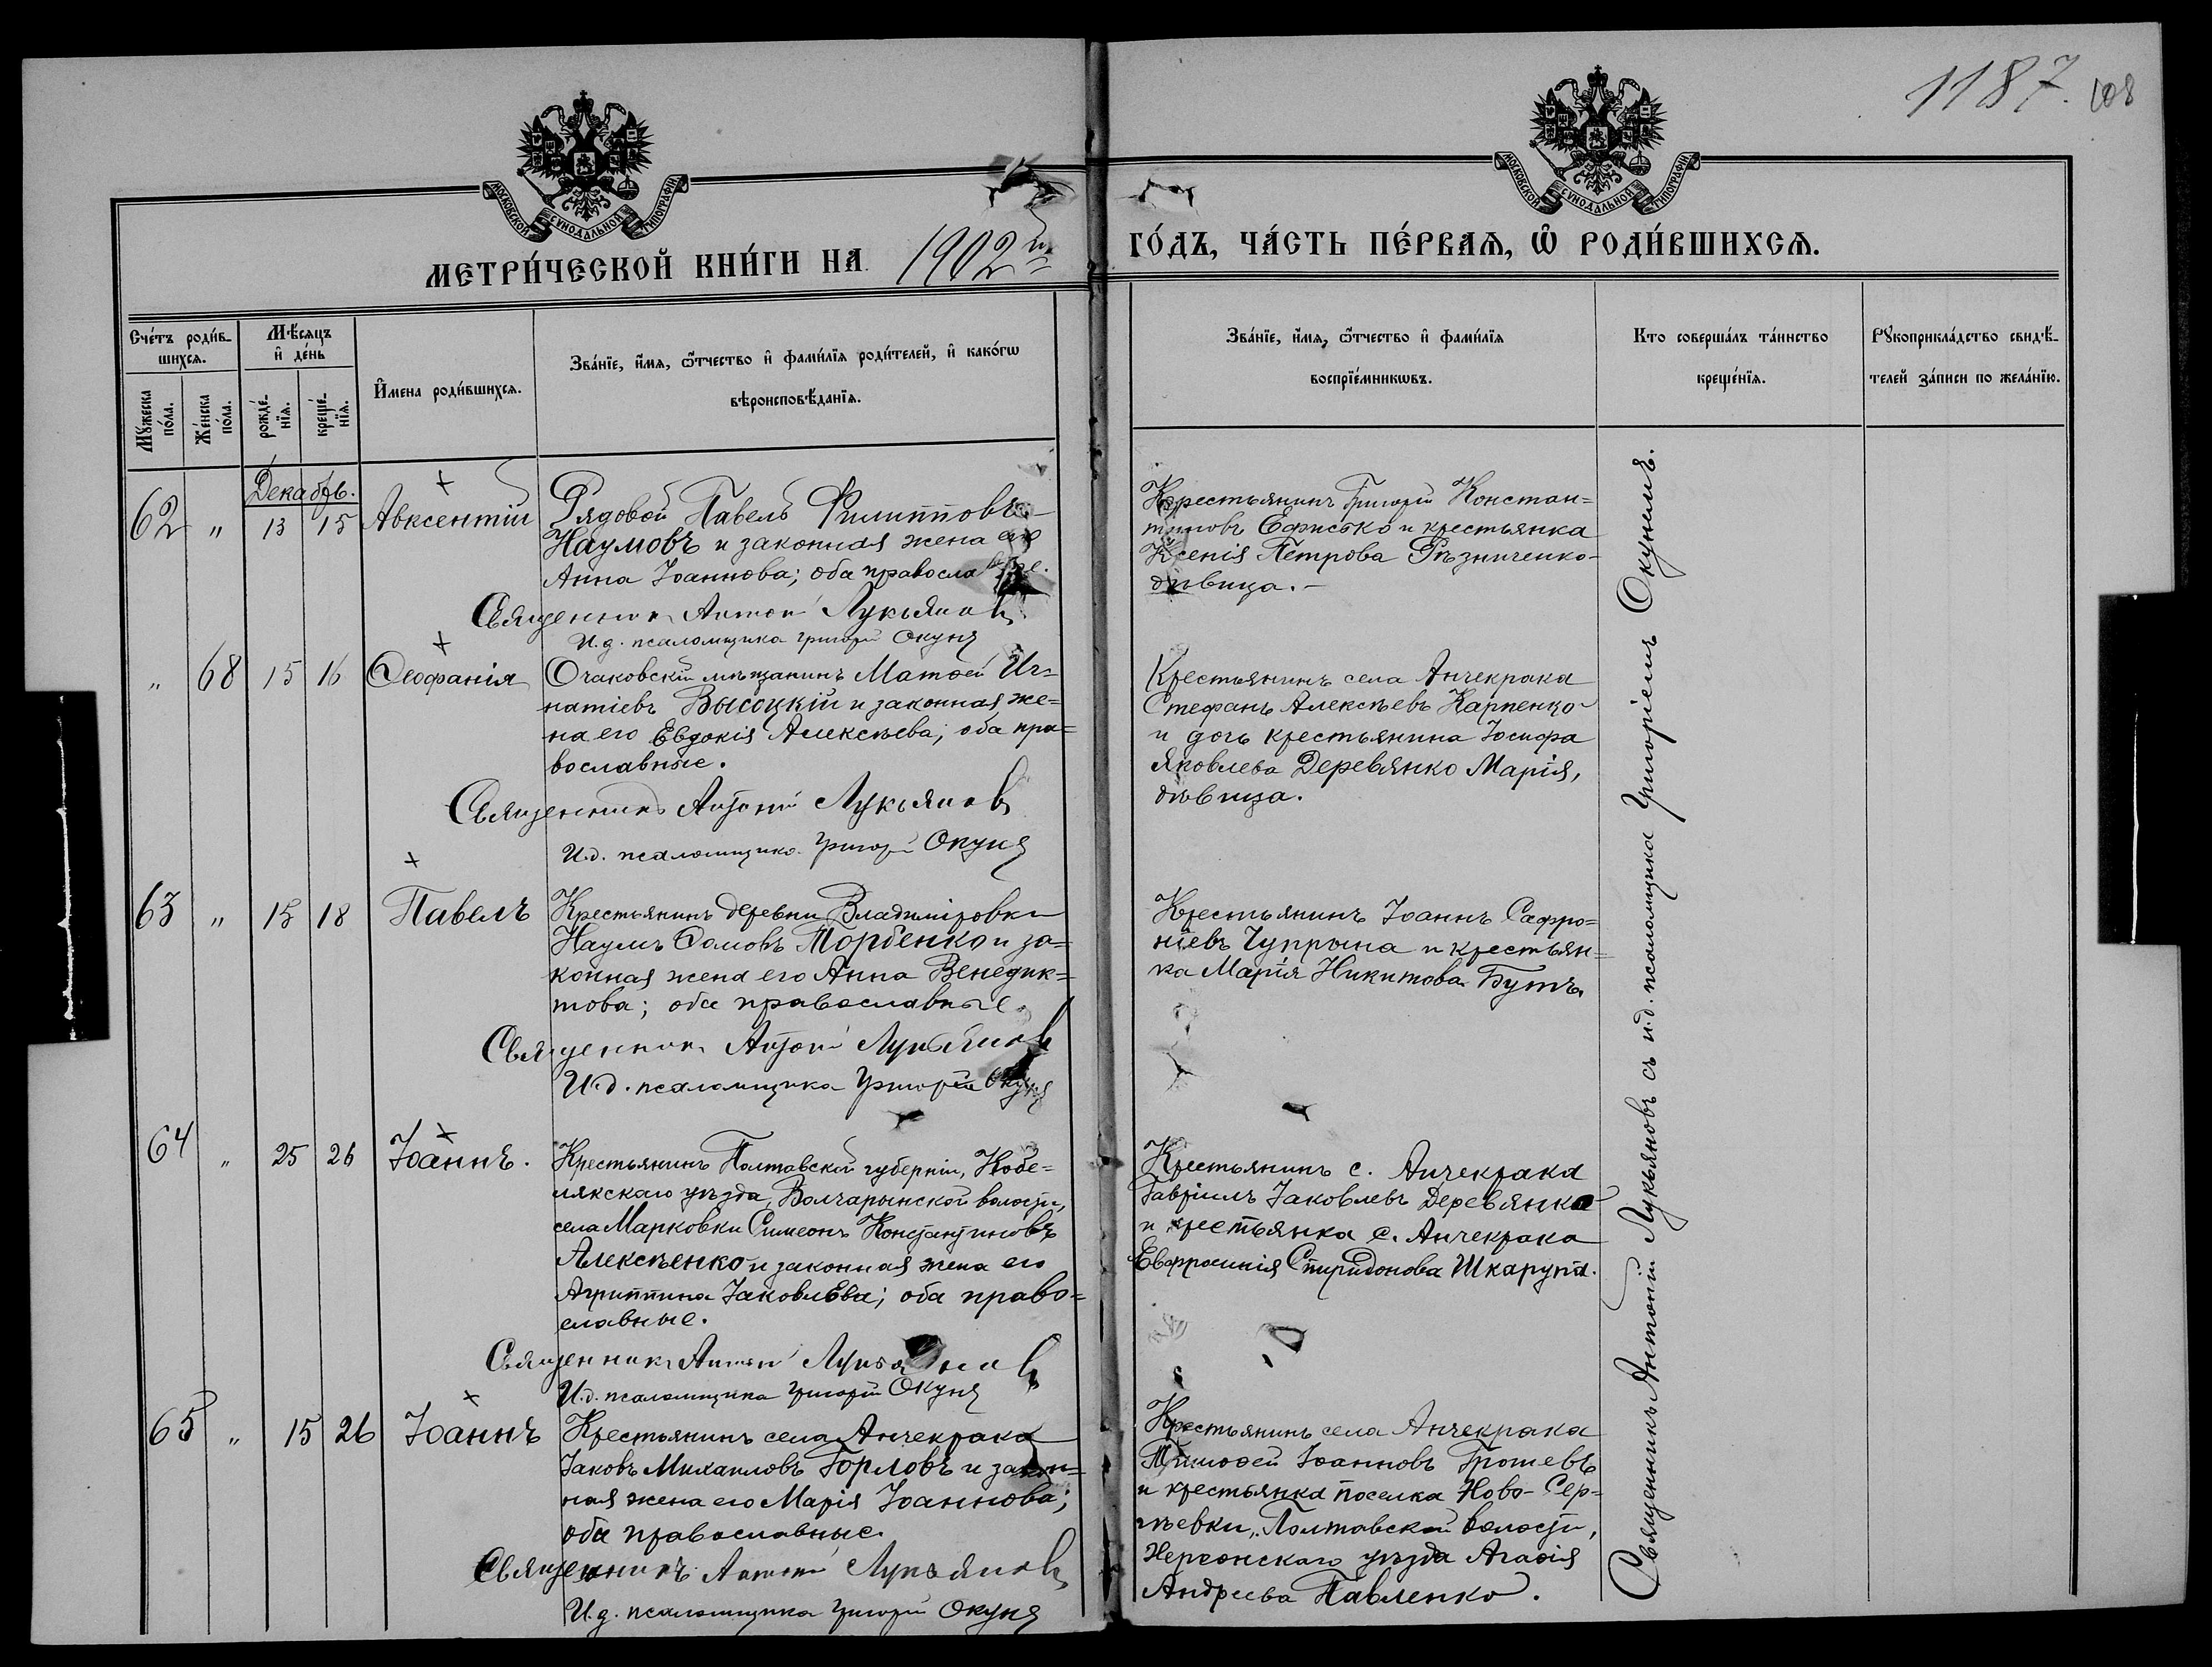 1187. 108
МОСКОВСКОЙ СѴНОДАЛЬНОЙ ТИПОГРАФІИ
МОСКОВСКОЙ СѴНОДАЛЬНОЙ ТИПОГРАФІИ
МЕТРИ́ЧЕСКОЙ КНИ́ГИ НА 1902й
ГО́ДЪ, ЧА́СТЬ ПЕ́РВАЯ, Ѡ РОДИ́ВШИХСЯ.
Сче́тъ роди́в-
шихся.
Мꙋ́жеска по́ла.
Же́нска по́ла.
Мѣ́сяцъ и де́нь
рожде́нїя.
креще́нїя.
И́мена роди́вшихся.
Зва́нїе, и́мя, ѻ́тчество и фами́лїя роди́телей, и како́гѡ
вѣроисповѣ́данїя.
Зва́нїе, и́мя, ѻ́тчество и фами́лїя
воспрїе́мникѡвъ.
Кто соверша́лъ та́инство
креще́нїя.
Рꙋкоприкла́дство свидѣ́-
телей за́писи по жела́нїю.
Декабрь.
62 " 13 15 Авксентій
Рядовой Павелъ Филипповъ
Наумовъ и законная жена его
Анна Іоаннова; оба православные.
Священникъ Антоній Лукьяновъ
И.д. псаломщика Григорій Окунь
Крестьянинъ Григорій Констан=
тиновъ Ефисько и крестьянка
Ксенія Петрова Рѣзниченко-
дѣвица.-
" 68 15 16 Ѳеофанія
Очаковскій мѣщанинъ Матѳей Иг=
натіевъ Высоцкій и законная же=
на его Евдокія Алексѣева; оба пра=
вославные.
Священникъ Антоній Лукьяновъ
И.д. псаломщика Григорій Окунь
Крестьянинъ села Анчекрака
Стефанъ Алексѣевъ Карпенко
и дочь крестьянина Іосифа
Яковлева Деревянко Марія,
дѣвица.
63 " 15 18 Павелъ
Крестьянинъ деревни Владиміровки
Наумъ Ѳомовъ Торбенко и за=
конная жена его Анна Венедик=
това; оба православные.
Священникъ Антоній Лукьяновъ
И.д. псаломщика Григорій Окунь
Крестьянинъ Іоаннъ Сафро=
ніевъ Чупрына и крестьян=
ка Марія Никитова Бутъ.
64 " 25 26 Іоаннъ.
Крестьянинъ Полтавской губерніи, Кобе=
лякскаго уѣзда, Волчарынской волости,
села Марковки Симеонъ Константиновъ
Алексѣенко и законная жена его
Агриппина Іаковлева; оба право=
славные.
Священникъ Антоній Лукьяновъ
И.д. псаломщика Григорій Окунь
Крестьянинъ с. Анчекрака
Гавріилъ Іаковлевъ Деревянко
и крестьянка с. Анчекрака
Евфросинія Спиридонова Шкарупа.
65 " 15 26 Іоаннъ
Крестьянинъ села Анчекрака
Іаковъ Михаиловъ Горловъ и закон=
ная жена его Марія Іоаннова;
оба православные.
Священникъ Антоній Лукьяновъ
И.д. псаломщика Григорій Окунь
Крестьянинъ села Анчекрака
Тимоѳей Іоанновъ Грошевъ
и крестьянка поселка Ново-Сер=
гѣевки, Полтавской волости,
Херсонскаго уѣзда Агаѳія
Андреева Павленко.
Священникъ Антоній Лукьяновъ съ и.д. псаломщика Григоріемъ Окунемъ.